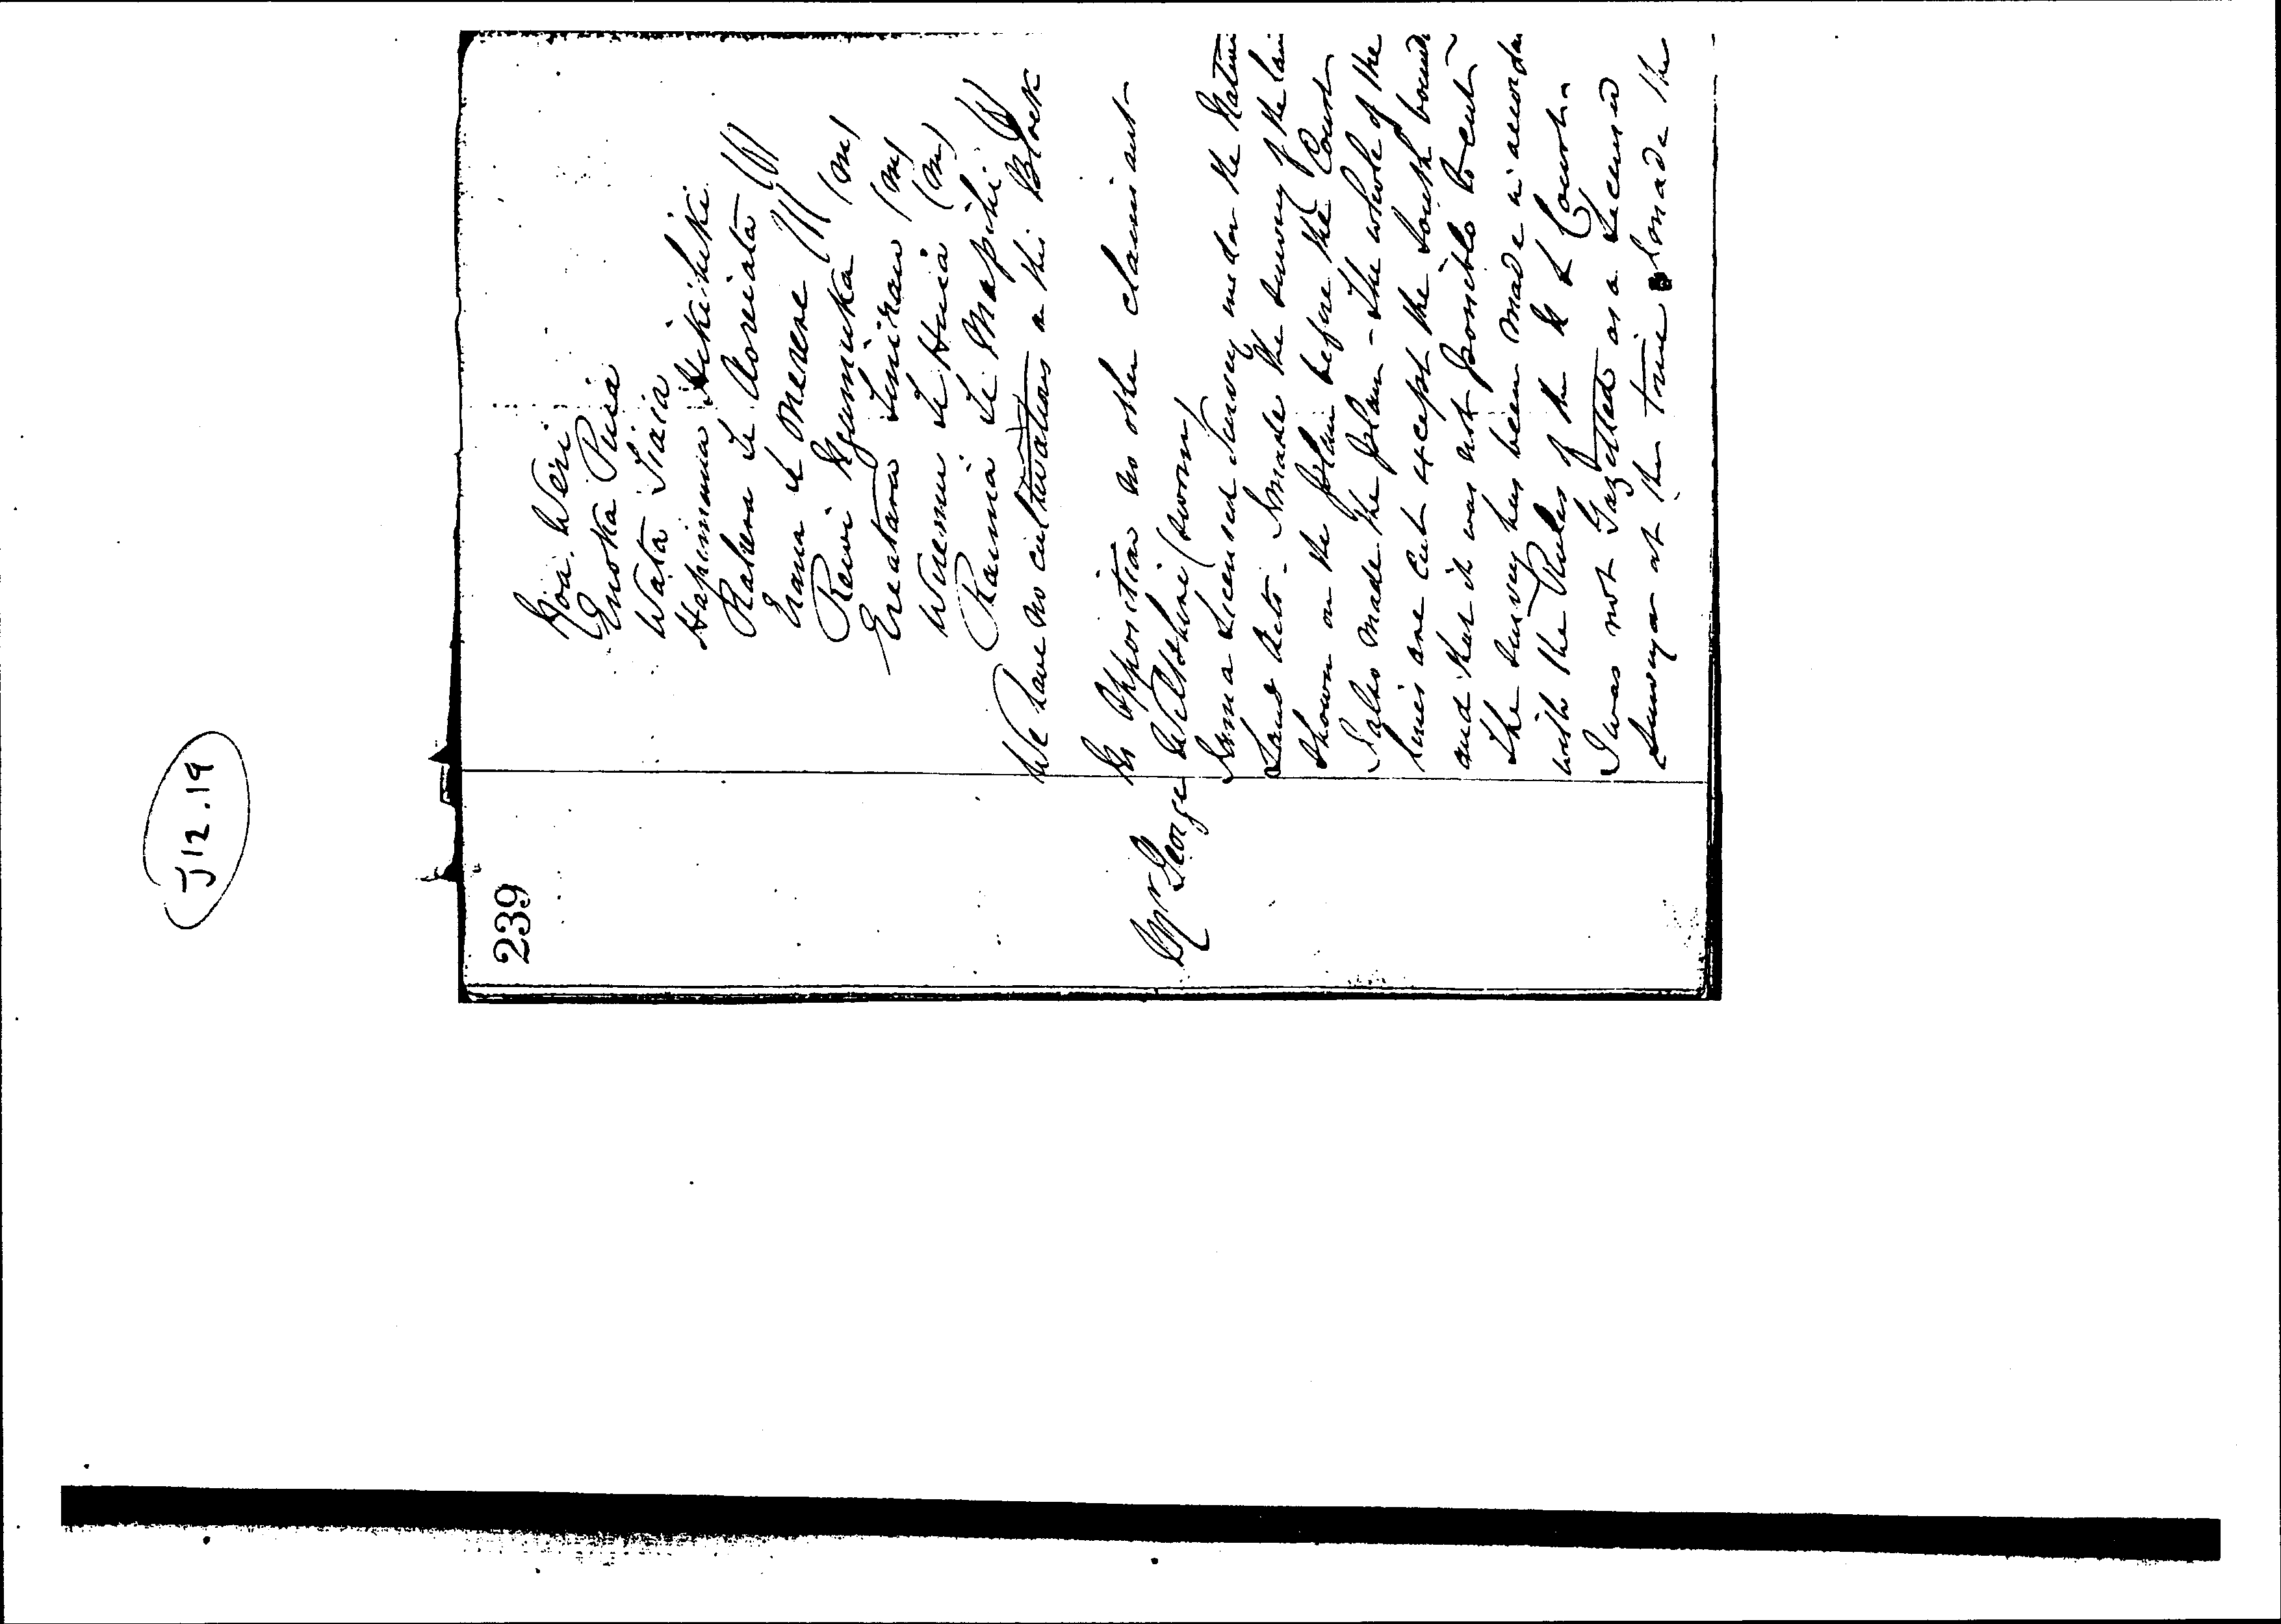 J12.19
239
Hoa Weri
Enoka Puia
Wata Tiaia
Hapimana Hikihiki
Rahera Te Aoreiata (f)
Erana Te Merere (f)
Rewi Ngumuka (m)
Ereatara (m)
Wiremu Te Huia (m)
Raumia Te Mapihi (f)
We have no cultivations on this Block
No opposition no other claimant
Mr George Wiltshire (sworn)
I am a Licensed Surveyor under the Native
Land Acts - I made the survey of the lan
shown on the plan before the Court
I also made the plan - The whole of the
lines are cut except the South bound
and that it was not possible to cut -
The survey has been made in accordan
with the Rules of the N L Court -
I was not Gazetted as a Licensed
Surveyor at the time I made the